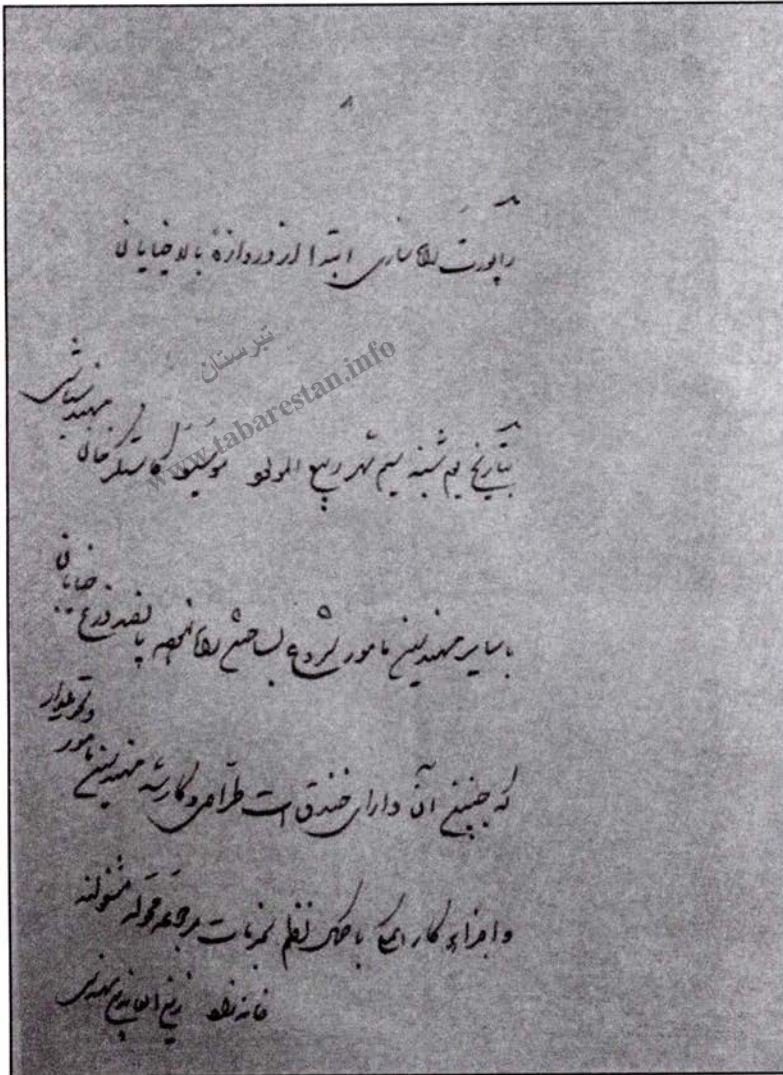 ۸
راپورت راه سازی ابتدا از دروازهٔ بالا خیابان
تبرستان
www.tabarestan.info
بتاریخ یوم شنبه سیم شهر ربیع المولود موسیو کاستکر خان مهندس باشی
با سایر مهندسین مامور شده بساختن راه پانصد ذرع خیابان
که جنبین آن دارای خندق است طراحی و کار شد مهندسین مامور
و اجزاء کار با کمال نظم بخدمات مرجوعه محوله مشغولند
خانه زاد زین العابدین مهندس